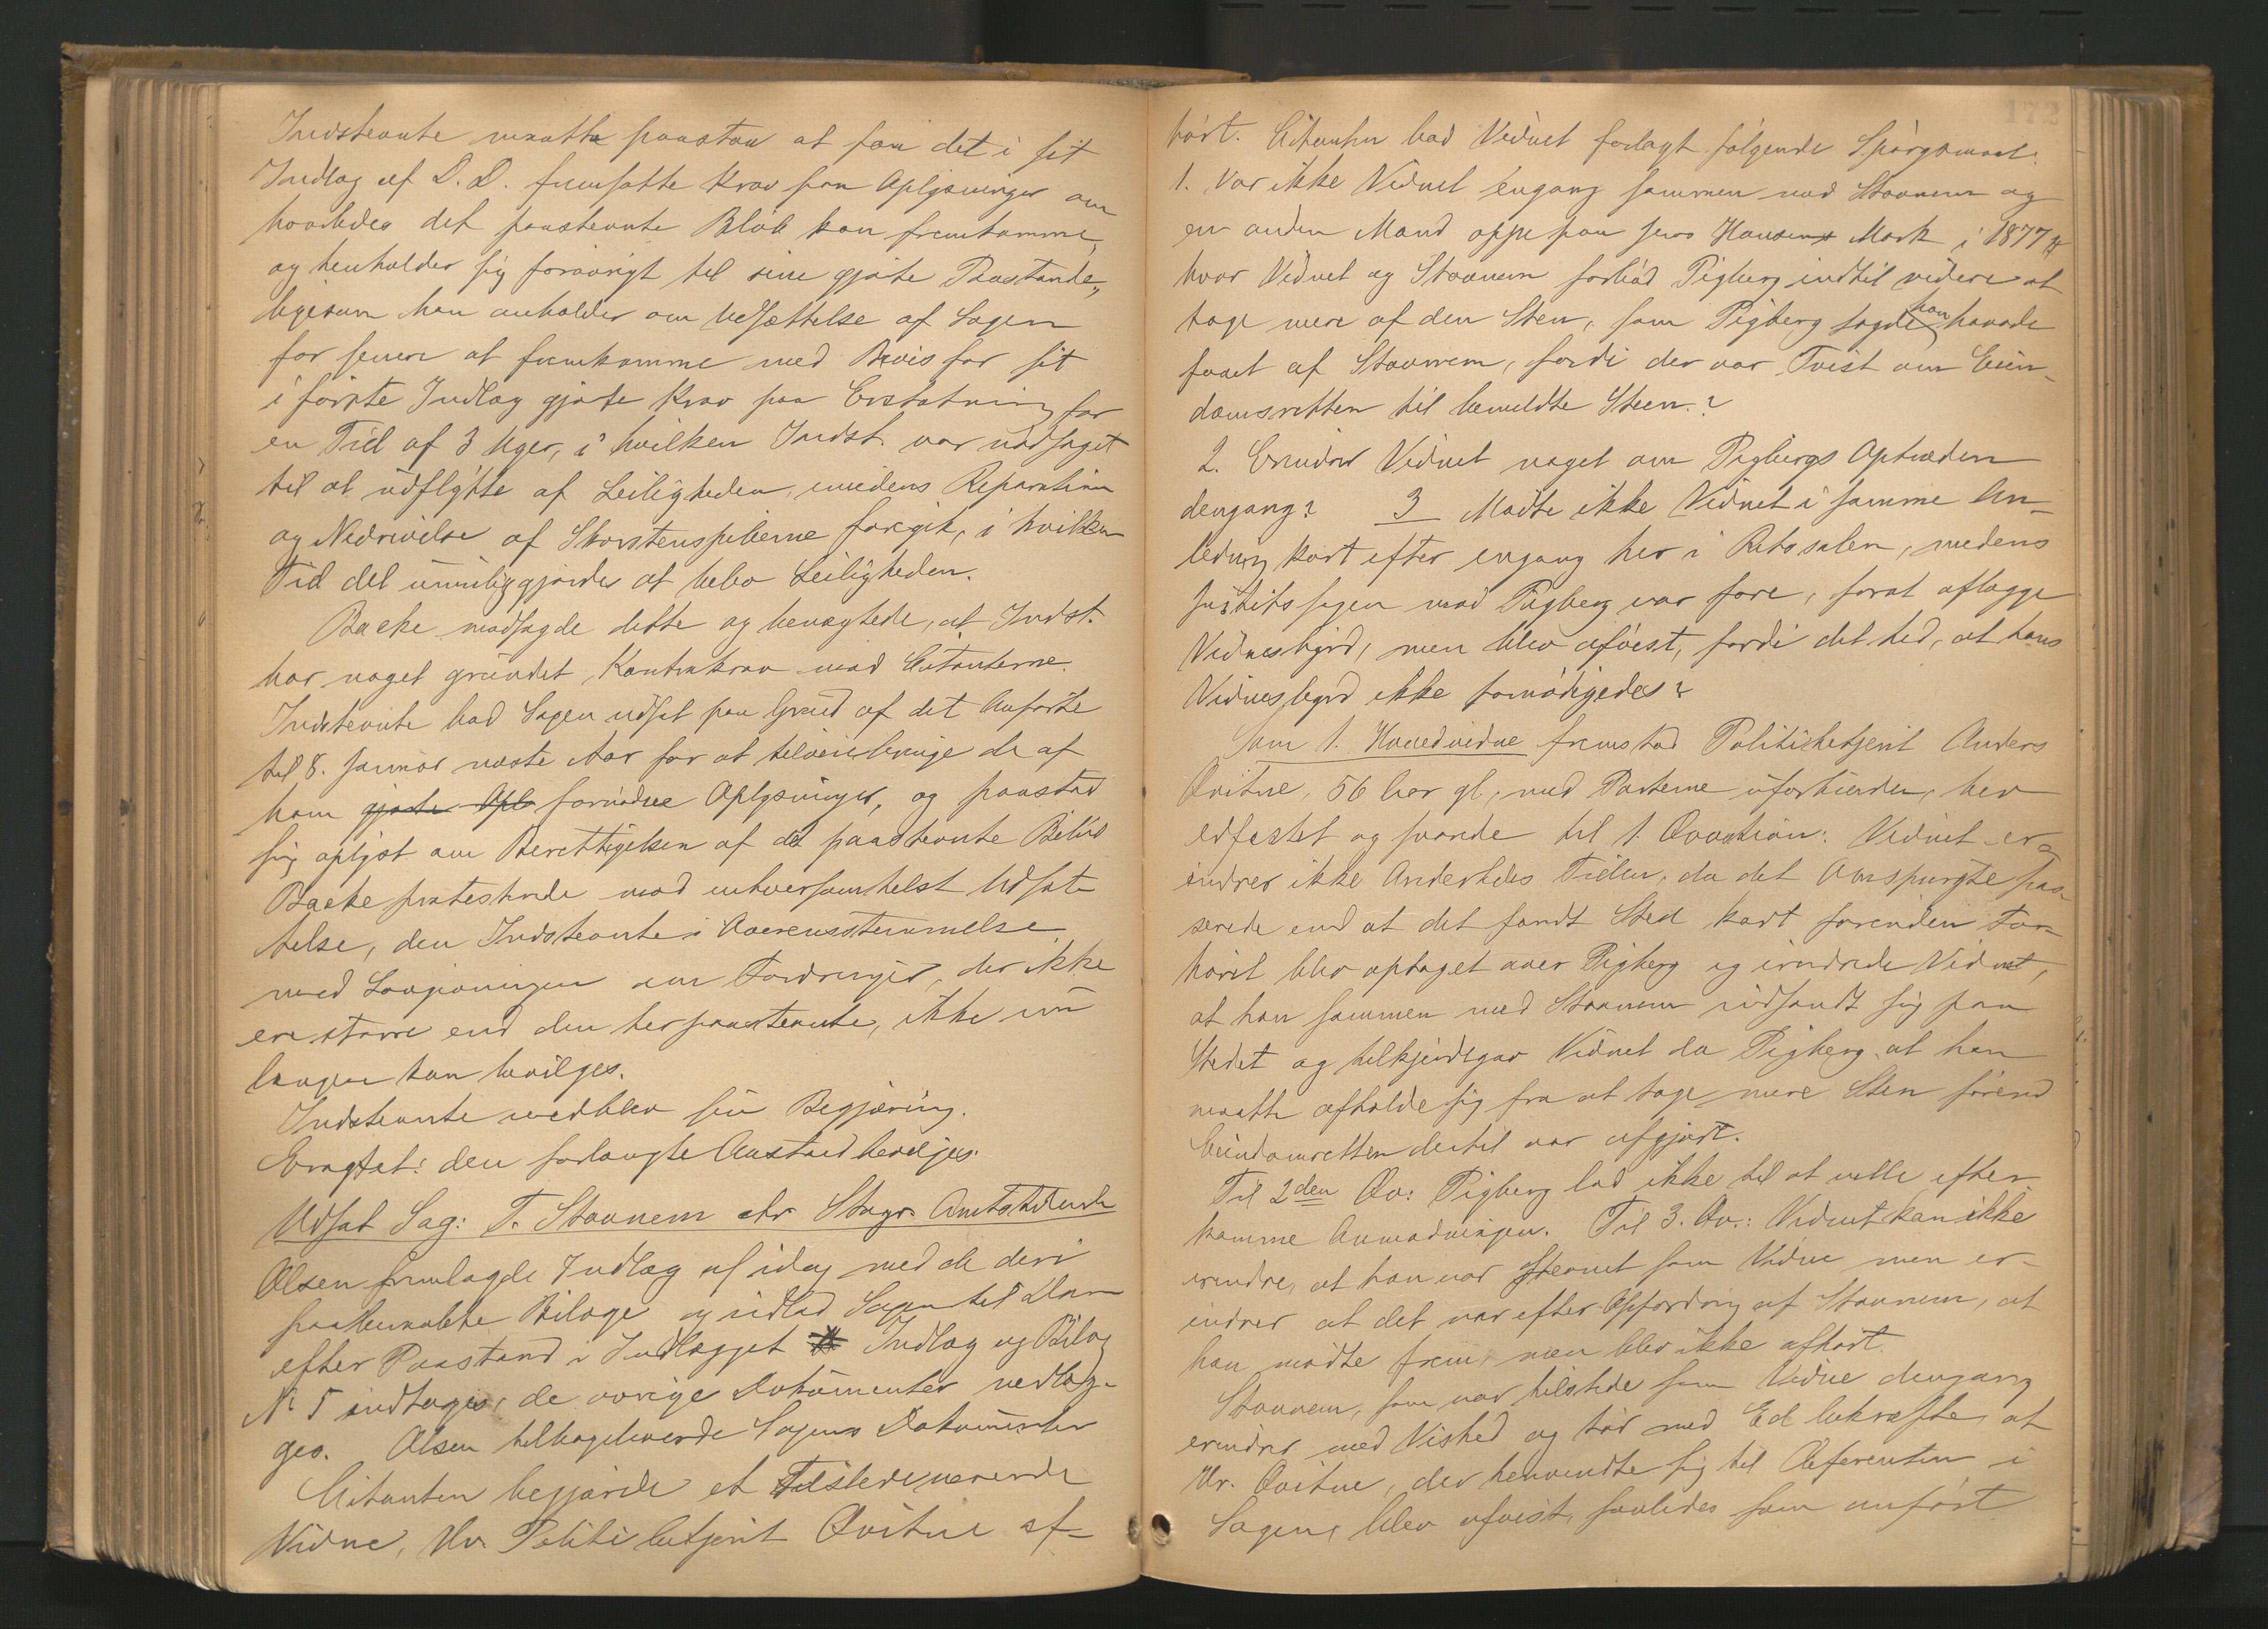 Indstevnte maatte paastaa at faa det i sit
Indlæg af D. D. fremsatte Krav paa Oplysninger om
hvorledes det paastevnte Beløb kan fremkomme,
og henholder sig forøvrigt til sine gjorte Paastande,
ligesom han anholder om Udsættelse af Sagen
for senere at fremkomme med Bevis for sit
i første Indlæg gjorte Krav paa Erstatning for
en Tid af 3 Uger, i hvilken Indst. var nødsaget
til at udflytte af Leiligheden, imedens Reparation
og Nedrivelse af Skorstenspiberne foregik, i hvilken
Tid det umuliggjordes at bebo Leiligheden.
Backe modsagde dette og benægtede, at Indst.
har noget grundet Kontrakrav mod Citanterne.
Indstevnte bad Sagen udsat paa Grund af det Anførte
til 8. Januar næste Aar for at tilveiebringe de af
ham gjorte Opl fornødne Oplysninger, og paastod
sig oplyst om Berettigelsen af det paastevnte Beløb
Backe protesterede mod enhversomhelst Udsæt-
telse, den Indstevnte i Overensstemmelse
med Lovgivningen om Fordringer, der ikke
ere større end den her paastevnte, ikke nu
længere kan bevilges.
Indstevnte vedblev sin Begjæring.
Eragtet: den forlangte Anstand bevilges.
Udsat Sag: T. Stavnem ctr Stavgr. Amtstidende
Olsen fremlagde Indlæg af idag med de deri
paaberaabte Bilage og indlod Sagen til Dom
efter Paastand i Indlægget Indlæg og Bilag
No 5 indtages, de øvrige Dokumenter vedlæg-
ges. Olsen tilbageleverde Sagens Dokumenter
Citanten begjærede et tilstedeværende
Vidne, Hr. Politibetjent Qvitne af-
hørt. Citanten bad Vidnet forelagt følgende Spørgsmaal:
1. Var ikke Vidnet engang sammen med Stavnem og
en anden Mand oppe paa Jens Hansens Mark i 1877
hvor Vidnet og Stavnem forbød Pigberg indtil videre at
tage mere af den Sten, som Pigberg sagde han havde
faaet af Stavnem, fordi der var Tvist om Eien-
domsretten til bemeldte Steen?
2. Erindrer Vidnet noget om Pigbergs Optræden
dengang? 3 Mødte ikke Vidnet i samme An-
ledning kort efter engang her i Retssalen, medens
Justitssagen mod Pigberg var fore, forat aflægge
Vidnesbyrd, men blev afvist, fordi det hed, at hans
Vidnesbyrd ikke fornødigedes?
Som 1. Hovedvidne fremstod Politibetjent Anders
Qvitne, 56 Aar gl, med Parterne uforbunden, blev
edfæstet og svarede til 1. Qvæstion: Vidnet er-
indrer ikke Anderledes Tiden, da det Omspurgte pas-
serede end at det fandt Sted kort forinden For-
høret blev optaget over Pigberg og erindrede Vidnet,
at han sammen med Stavnem indfandt sig paa
Stedet og tilkjendegav Vidnet da Pigberg at han
maatte afholde sig fra at tage mere Sten førend
Eiendomsretten dertil var afgjort.
Til 2den Qv: Pigberg lod ikke til at ville efter
komme Anmodningen. Til 3. Qv.: Vidnet kan ikke
erindre, at han var stevnet som Vidne men er-
indrer at det var efter Opfordring af Stavnem, at
han mødte frem, men blev ikke afhørt.
Stavnem, som var tilstede som Vidne dengang
erindrer med Vished og tør med Ed bekræfte, at
Hr. Qvitne, der henvendte sig til Referenten i
Sagen, blev afvist, saaledes som anført